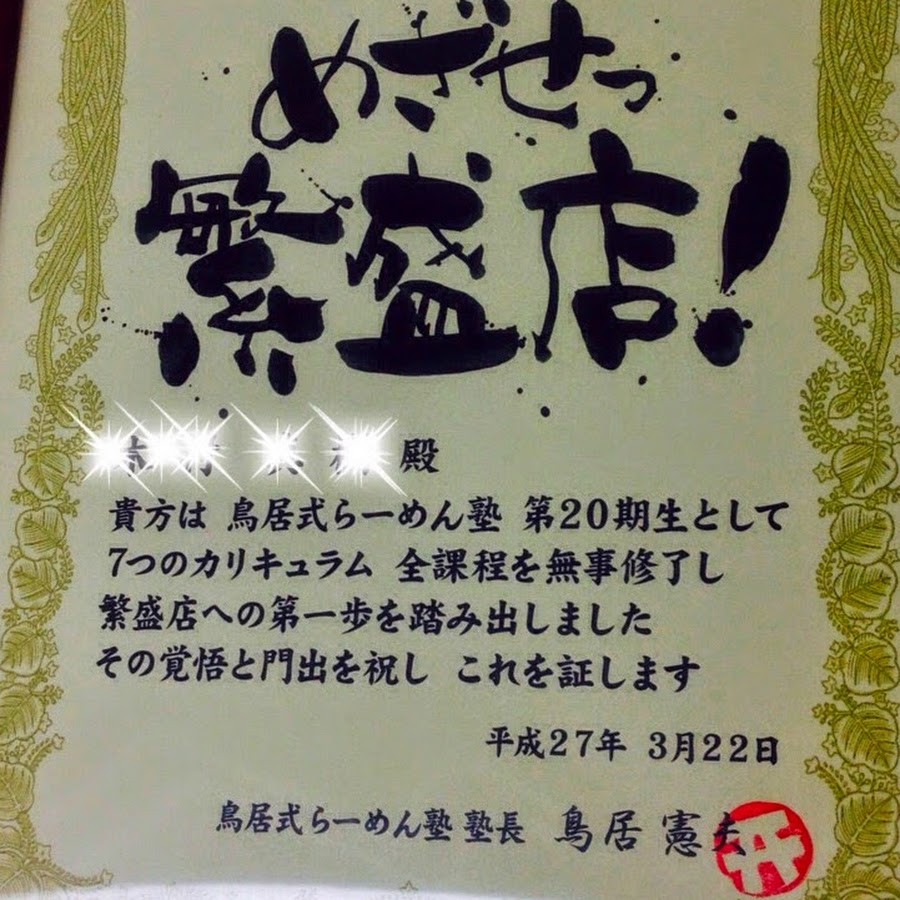 めざせっ
繁盛店!
殿
貴方は 鳥居式らーめん塾 第20期生として
7つのカリキュラム 全課程を無事修了し
繁盛店への第一歩を踏み出しました
その覚悟と門出を祝し これを証します
平成27年 3月22日
鳥居式らーめん塾 塾長 鳥居 憲夫